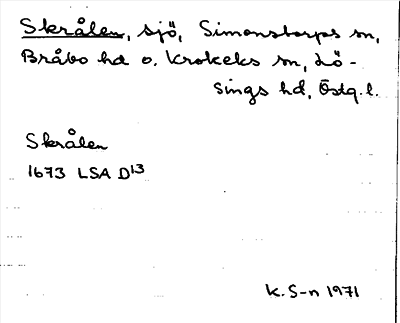 Skrålen, sjö, Simonstorps sn,
Bråbo hd o. Krokeks sn, Lö-
sings hd, Östg. l.
Skrålen
1673 LSA D13
K. S-n 1971